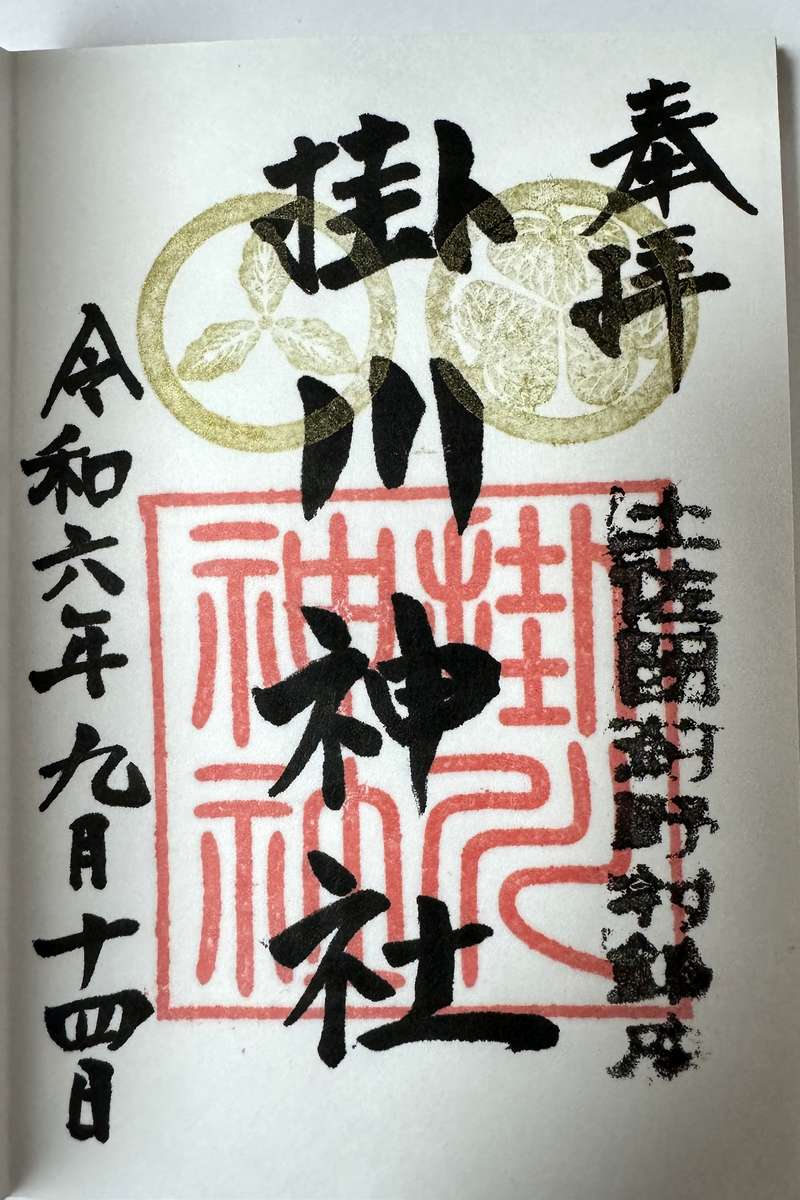 奉拝
土佐国
掛川神社
掛川
神社
令和六年九月十四日